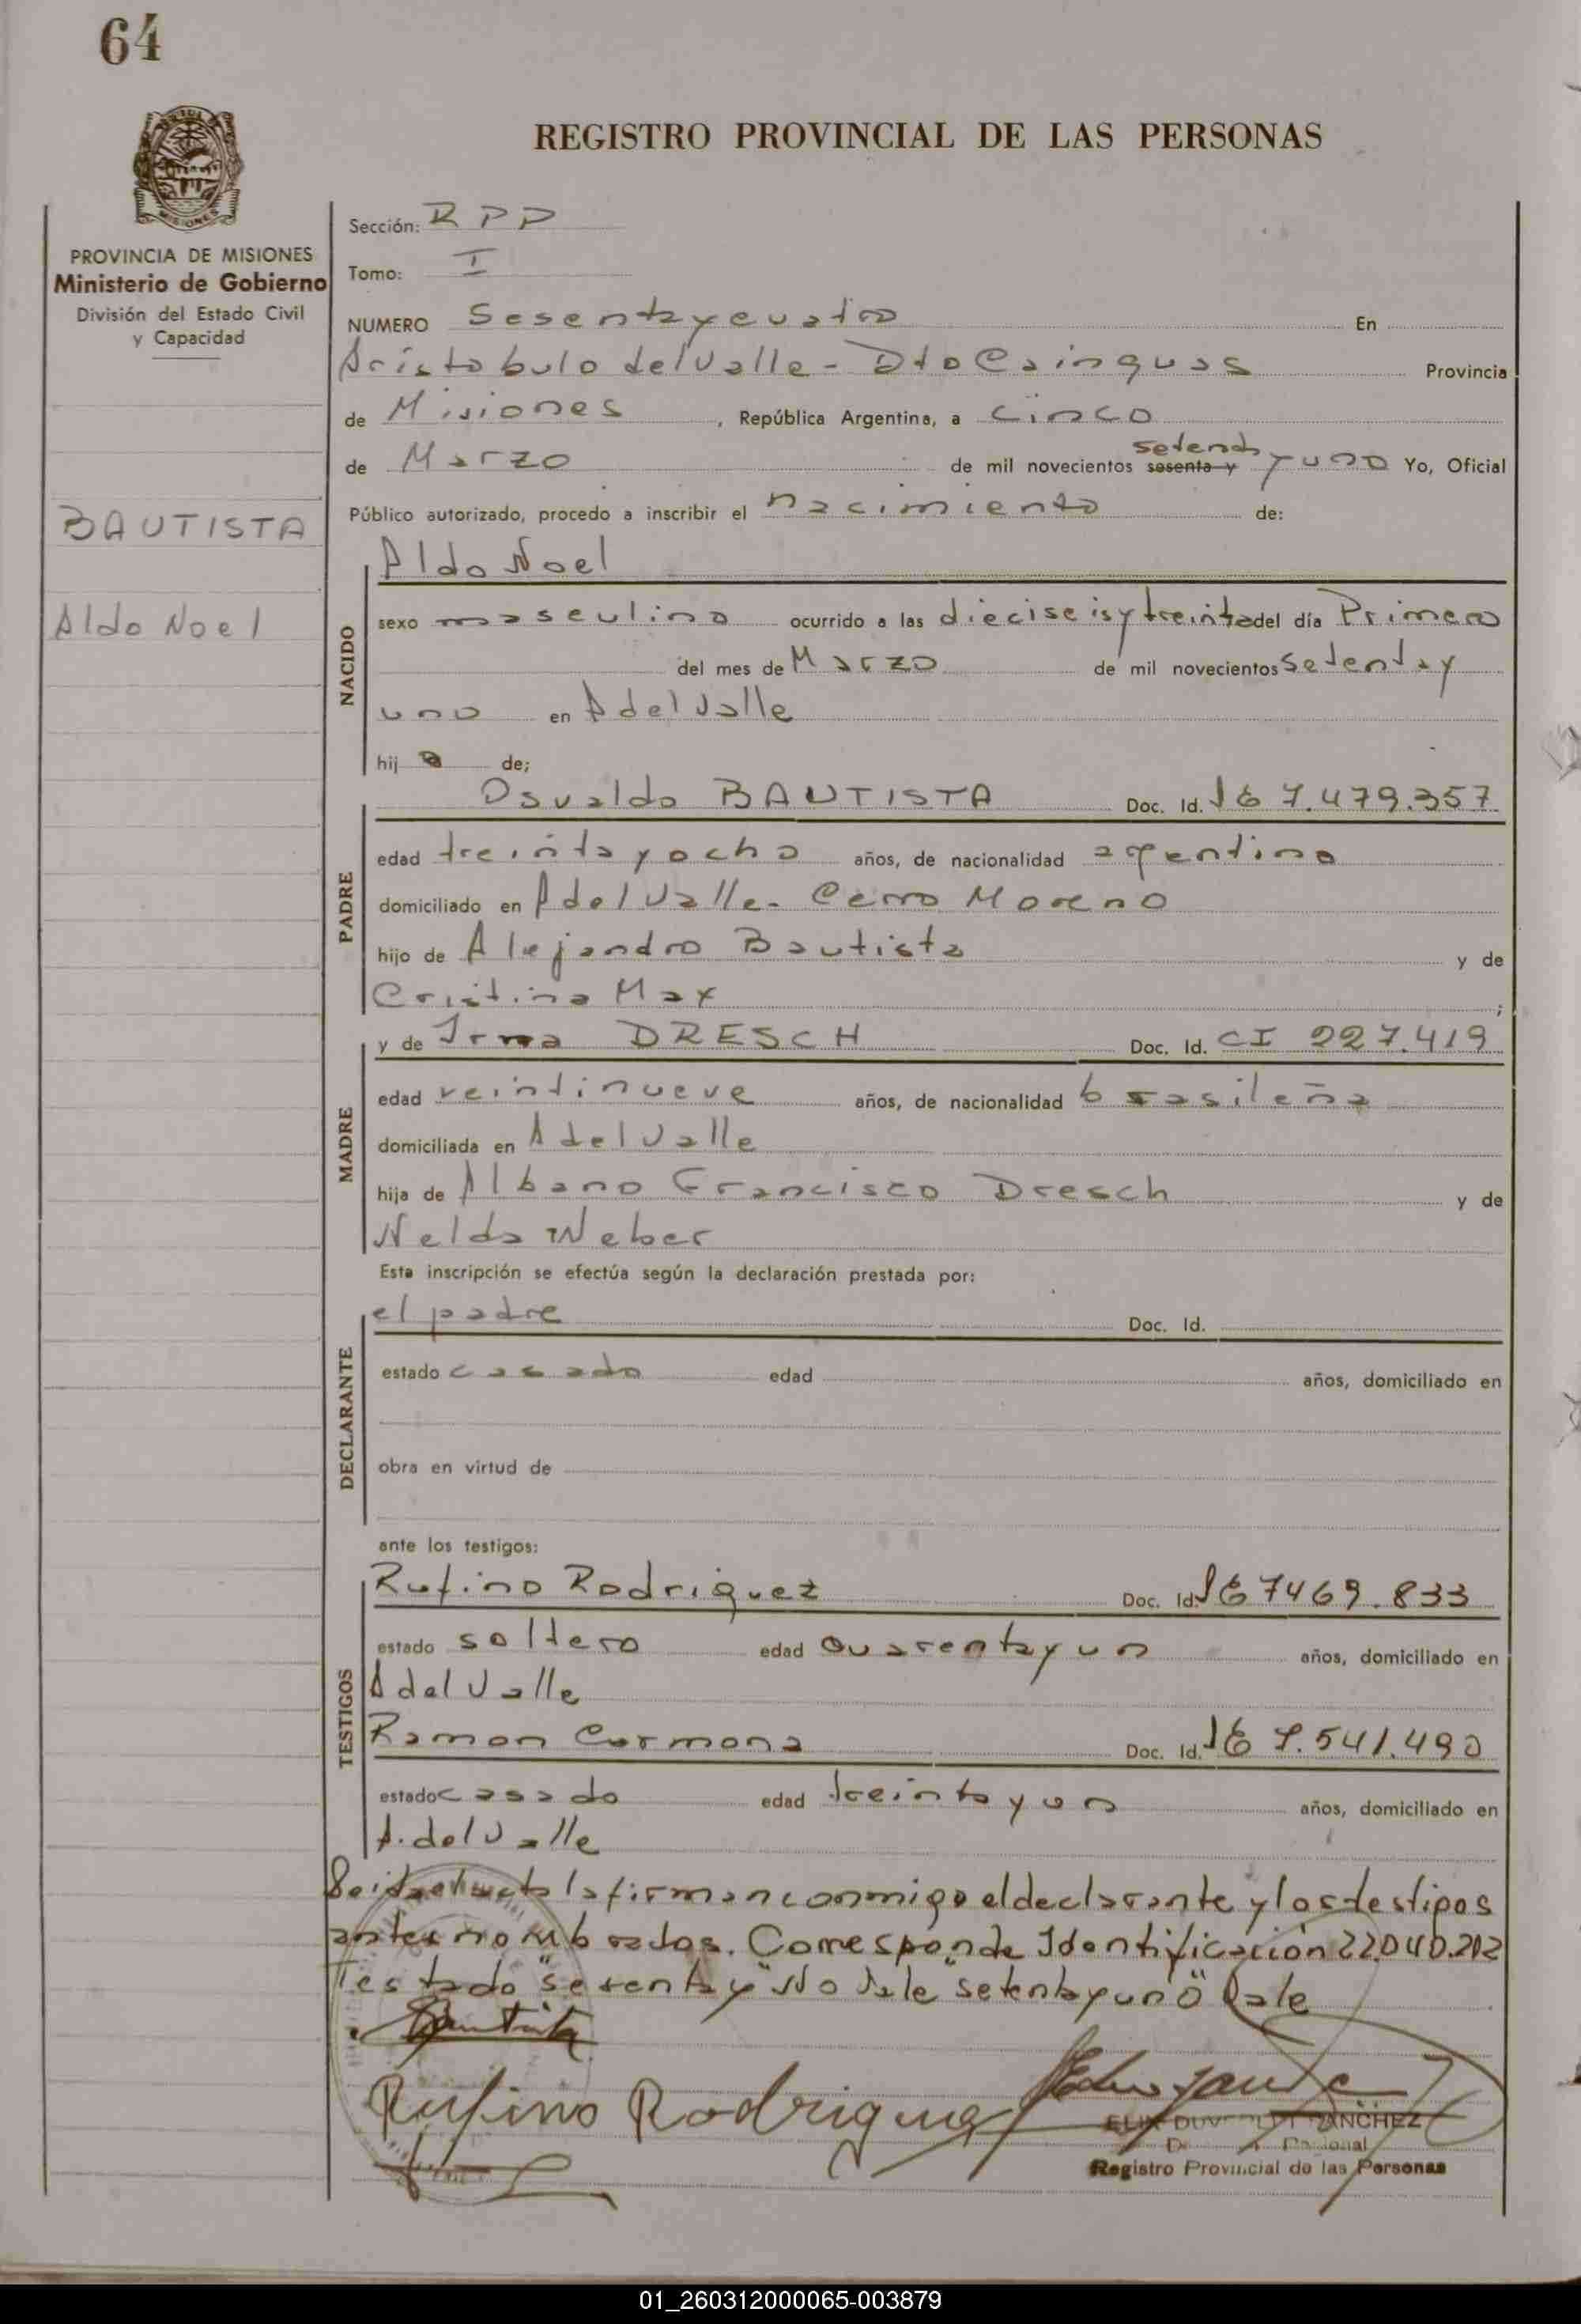 64
REGISTRO PROVINCIAL DE LAS PERSONAS
MISIONES
PROVINCIA DE MISIONES
Ministerio de Gobierno
División del Estado Civil
y Capacidad
BAUTISTA
Aldo Noel
Sección: R P P
Tomo: I
NUMERO Sesenta y cuatro En
Aristobulo del Valle - Dto Cainguas Provincia
de Misiones, República Argentina, a cinco
de Marzo de mil novecientos sesenta y setenta y uno Yo, Oficial
Público autorizado, procedo a inscribir el nacimiento de:
NACIDO
Aldo Noel
sexo masculino ocurrido a las dieciseis y treinta del día Primero
del mes de Marzo de mil novecientos setenta y
uno en A del Valle
hij o de;
PADRE
Osvaldo BAUTISTA Doc. Id. LE 7.479.357
edad treinta y ocho años, de nacionalidad argentina
domiciliado en A del Valle - Cerro Moreno
hijo de Alejandro Bautista y de
Cristina Max ;
MADRE
y de Irma DRESCH Doc. Id. CI 227.419
edad veintinueve años, de nacionalidad brasileña
domiciliada en A del Valle
hija de Albano Francisco Dresch y de
Nelda Weber
Esta inscripción se efectúa según la declaración prestada por:
DECLARANTE
el padre Doc. Id.
estado casado edad años, domiciliado en
obra en virtud de
ante los testigos:
TESTIGOS
Rufino Rodriguez Doc. Id. LE 7469.833
estado soltero edad cuarenta y un años, domiciliado en
A del Valle
Ramon Carmona Doc. Id. LE 7.541.490
estado casado edad treinta y un años, domiciliado en
A. del Valle
Leida el acta la firman conmigo el declarante y los testigos
antes nombrados. Corresponde Identificación 22.040.212
Testado "sesenta y" No Vale "setenta y uno" Vale
Bautista
Rufino Rodriguez
SANCHEZ
Registro Provincial de las Personas
01_260312000065-003879